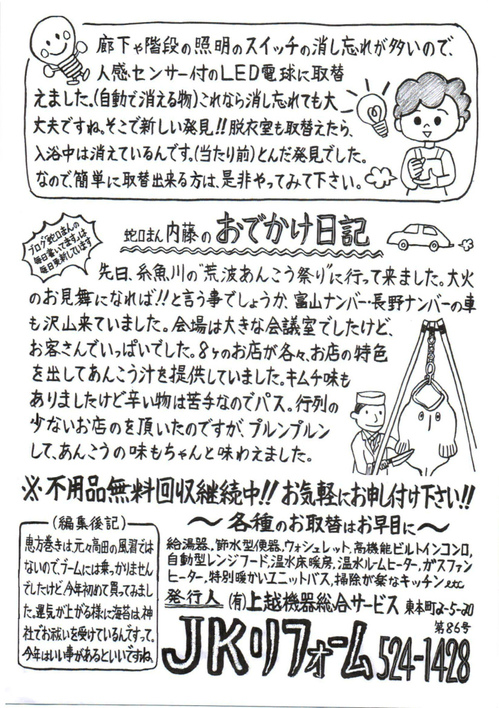 廊下や階段の照明のスイッチの消し忘れが多いので、
人感センサー付のLED電球に取替
えました。(自動で消える物)これなら消し忘れても大
丈夫ですね。そこで新しい発見!!脱衣室も取替えたら、
入浴中は消えているんです。(当たり前)とんだ発見でした。
なので、簡単に取替出来る方は、是非やってみて下さい。
ブログ蛇口まんの
毎日書いてます。は
毎日更新しています
蛇口まん内藤のおでかけ日記
先日、糸魚川の"荒波あんこう祭り"に行って来ました。大火
のお見舞になれば!!と言う事でしょうか、富山ナンバー・長野ナンバーの車
も沢山来ていました。会場は大きな会議室でしたけど、
お客さんでいっぱいでした。8ヶのお店が各々、お店の特色
を出してあんこう汁を提供していました。キムチ味も
ありましたけど辛い物は苦手なのでパス。行列の
少ないお店のを頂いたのですが、プルンプルン
して、あんこうの味もちゃんと味わえました。
※不用品無料回収継続中!!お気軽にお申し付け下さい!!
〜各種のお取替はお早目に〜
給湯器、節水型便器、ウォシュレット、高機能ビルトインコンロ、
自動型レンジフード、温水床暖房、温水ルームヒーター、ガスファン
ヒーター、特別暖かいユニットバス、掃除が楽なキッチンetc
(編集後記)
恵方巻きは元々高田の風習では
ないのでブームには乗っかりません
でしたけど、今年初めて買ってみまし
た。運気が上がる様に海苔は、神
社でお祓いを受けているんですって。
今年はいい事があるといいですね。
発行人 (有)上越機器総合サービス 東本町2-5-20
第86号
JKリフォーム 524-1428